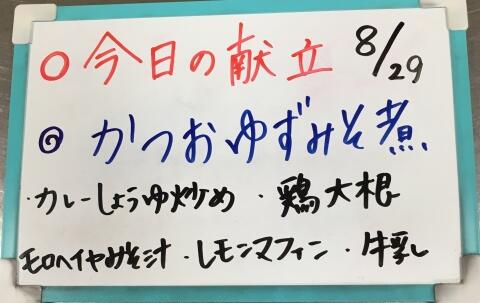 ○今日の献立 8/29
◎かつおゆずみそ煮
・カレーしょうゆ炒め ・鶏大根
モロヘイヤみそ汁 ・レモンマフィン ・牛乳